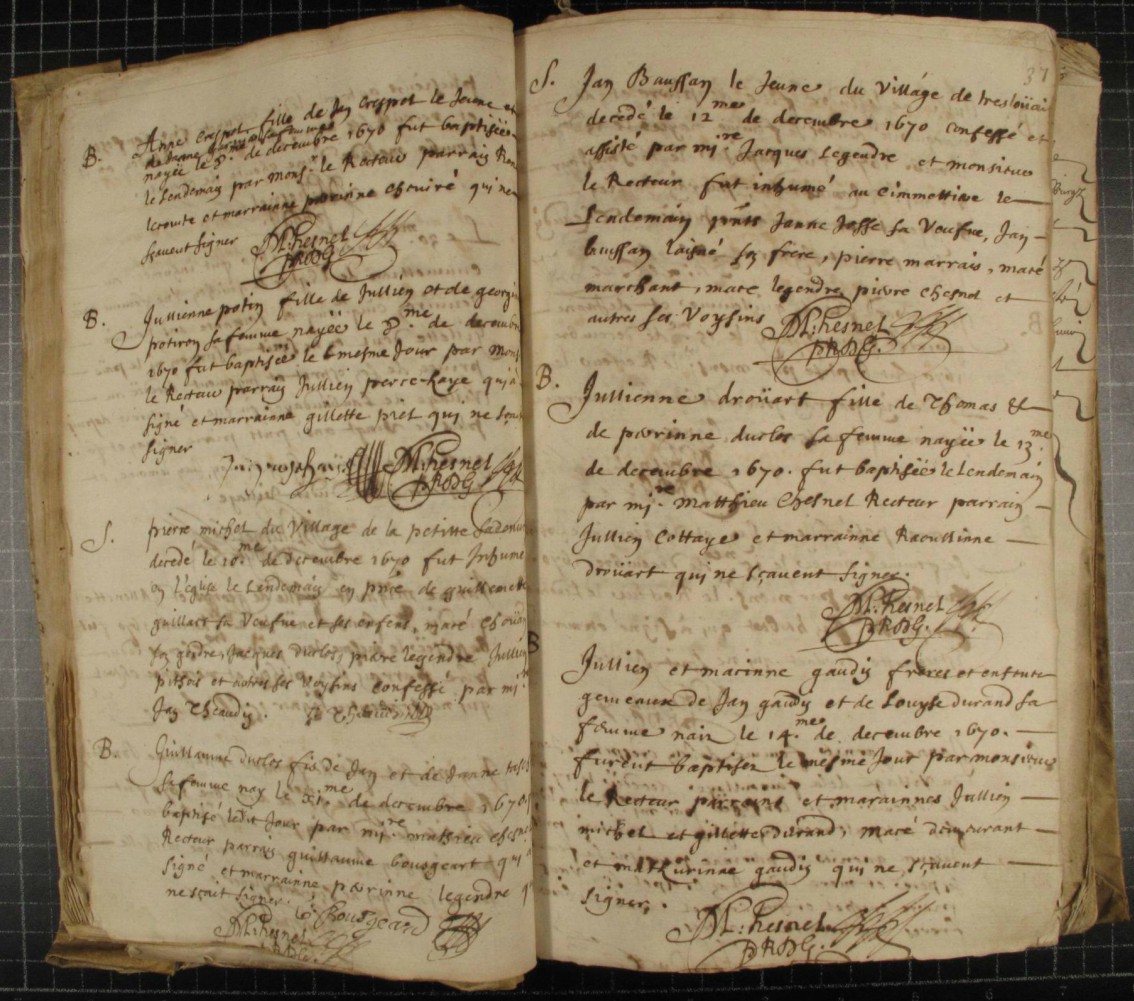 B. Anne crespot fille de Jan Crespot le Jeune et
de Janne sa femme
nayée le 8e. de decembre 1670 fut baptisée
le Lendemain par Monsr. le Recteur parrain
lecomte et marrainne perinne Chouiré qui ne
sçavent signer M: Chesnel
PRSDG
B. Jullienne potin fille de Jullien et de georgin
potiron sa femme nayëe le 8.me de decemb
1670 fut baptisée le mesme Jour par Mons
le Recteur parrain Jullien perce-haye qui a
signé et marrainne gillette piel qui ne sçait
signer
M: Chesnel
PRSDG
S. pierre michel du Village de la petitte
decedé le 10.me de decembre 1670 fut Inhumé
en l'eglise le Lendemain en pnce de guillemette
guillart sa Veufue et ses enfens, maré
son gendre, Jacques duclos, piarre legendre Jullien
et autres ses Voysins confessé par mi.re
Jan Theaudin.
B. Guillaume duclos fis de Jan et de Janne
sa femme nay le xi.me de decembre 1670
baptisé ledit Jour par mi.re matthieu chesnel
Recteur parrain guillaume bourgeart qui
signé et marrainne perinne legendre q
ne sçait signer. G Bourgeard
M: Chesnel
PRSDG.
37
S. Jan Baussan le Jeune du Village de treslöüai
decedé le 12.me de decembre 1670 Confessé et
assisté par mi.re Jacques Legendre et monsieur
le Recteur fut inhumé au Cimmettiere le
Lendemain pnts Janne Josse sa Veufue, Jan
baussan laisné son frere, pierre marrais, maté
marchant, mare legendre, pierre Chesnel et
autres ses Voysins M: Chesnel
PRSDG.
B. Jullienne dröüart fille de Thomas &
de perrinne duclos sa femme nayëe le 13.me
de decembre 1670. fut baptisée le Lendemain
par mi.re Matthieu Chesnel Recteur parrain
Jullien Cottaye et marrainne Raoullinne
dröüart qui ne sçavent signer.
M: Chesnel
PRSDG.
B Jullien et macinne gaudin freres et
gemeaux de Jan gaudin et de Louyse durand sa
femme naiz le 14.me de decembre 1670.
furent baptisez le mesme Jour par monsieur
le Recteur parrains et marainnes Jullien
michel et gillette durand, maré
et mathurinne gaudin qui ne sçauent
signer.
M: Chesnel
PRSDG.